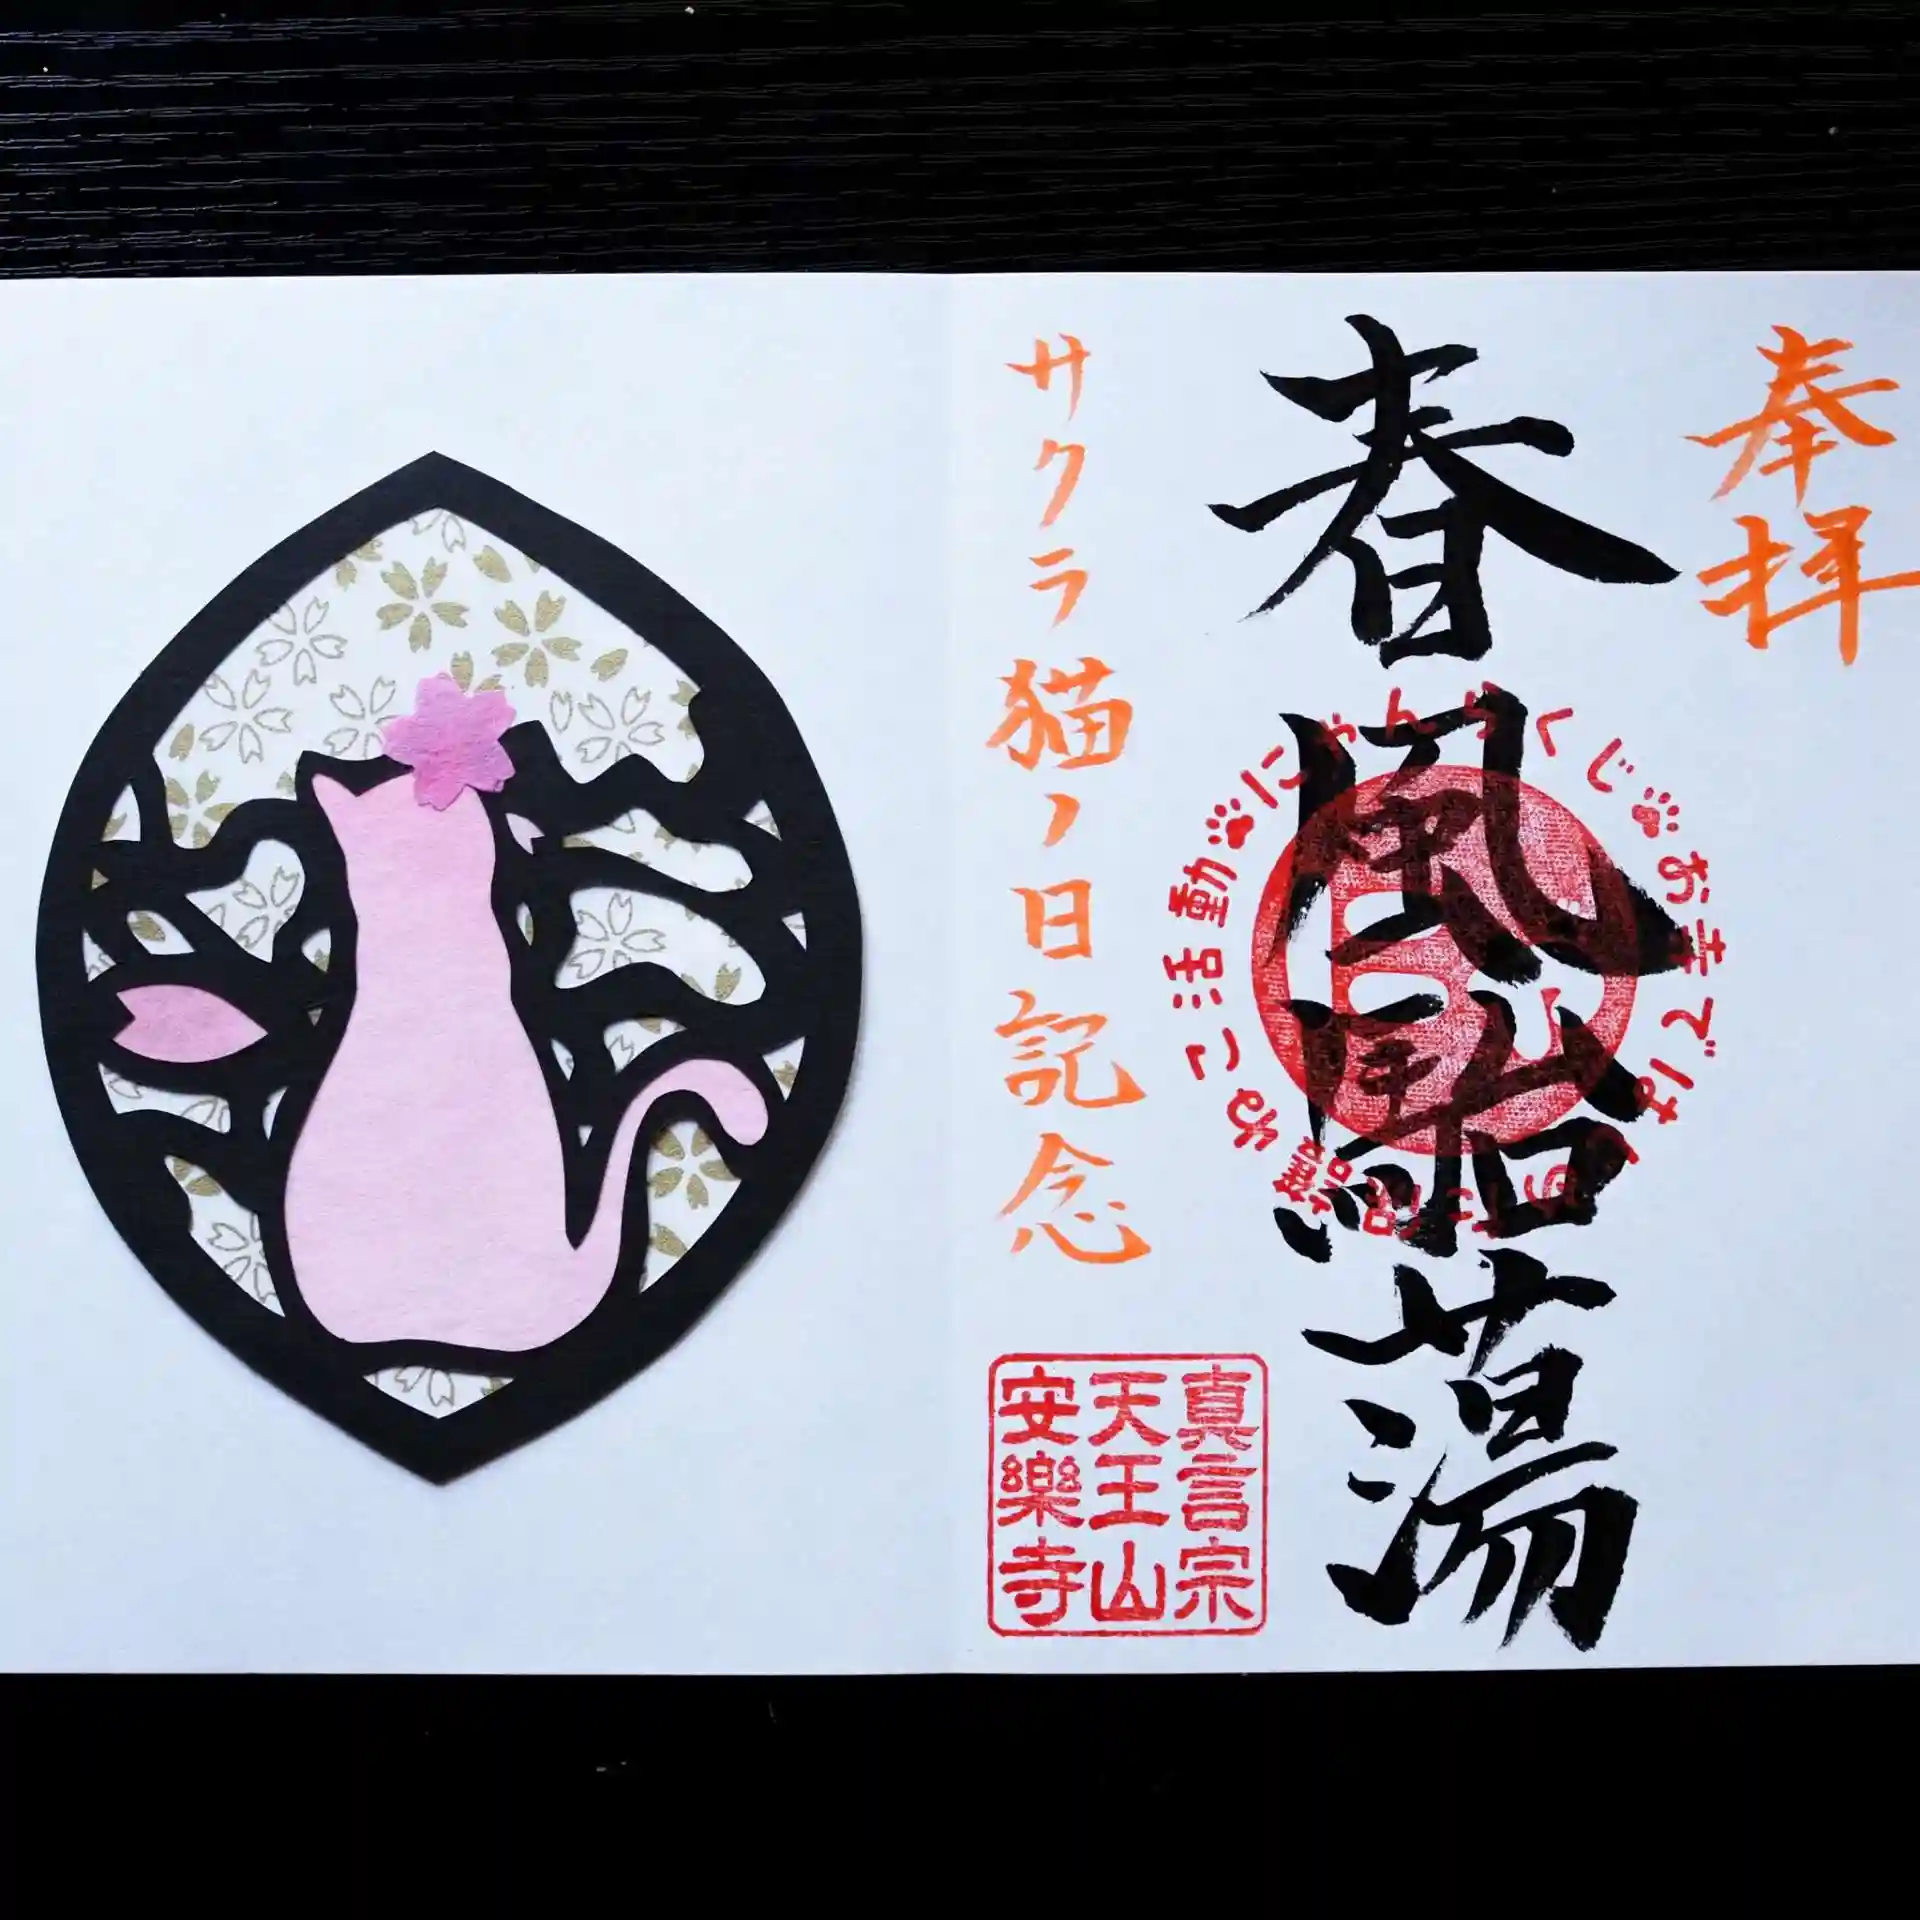 奉拝
春風駘蕩
サクラ猫ノ日記念
にゃんらくじ
お寺では
ねこ活動
真言宗
天王山
安樂寺